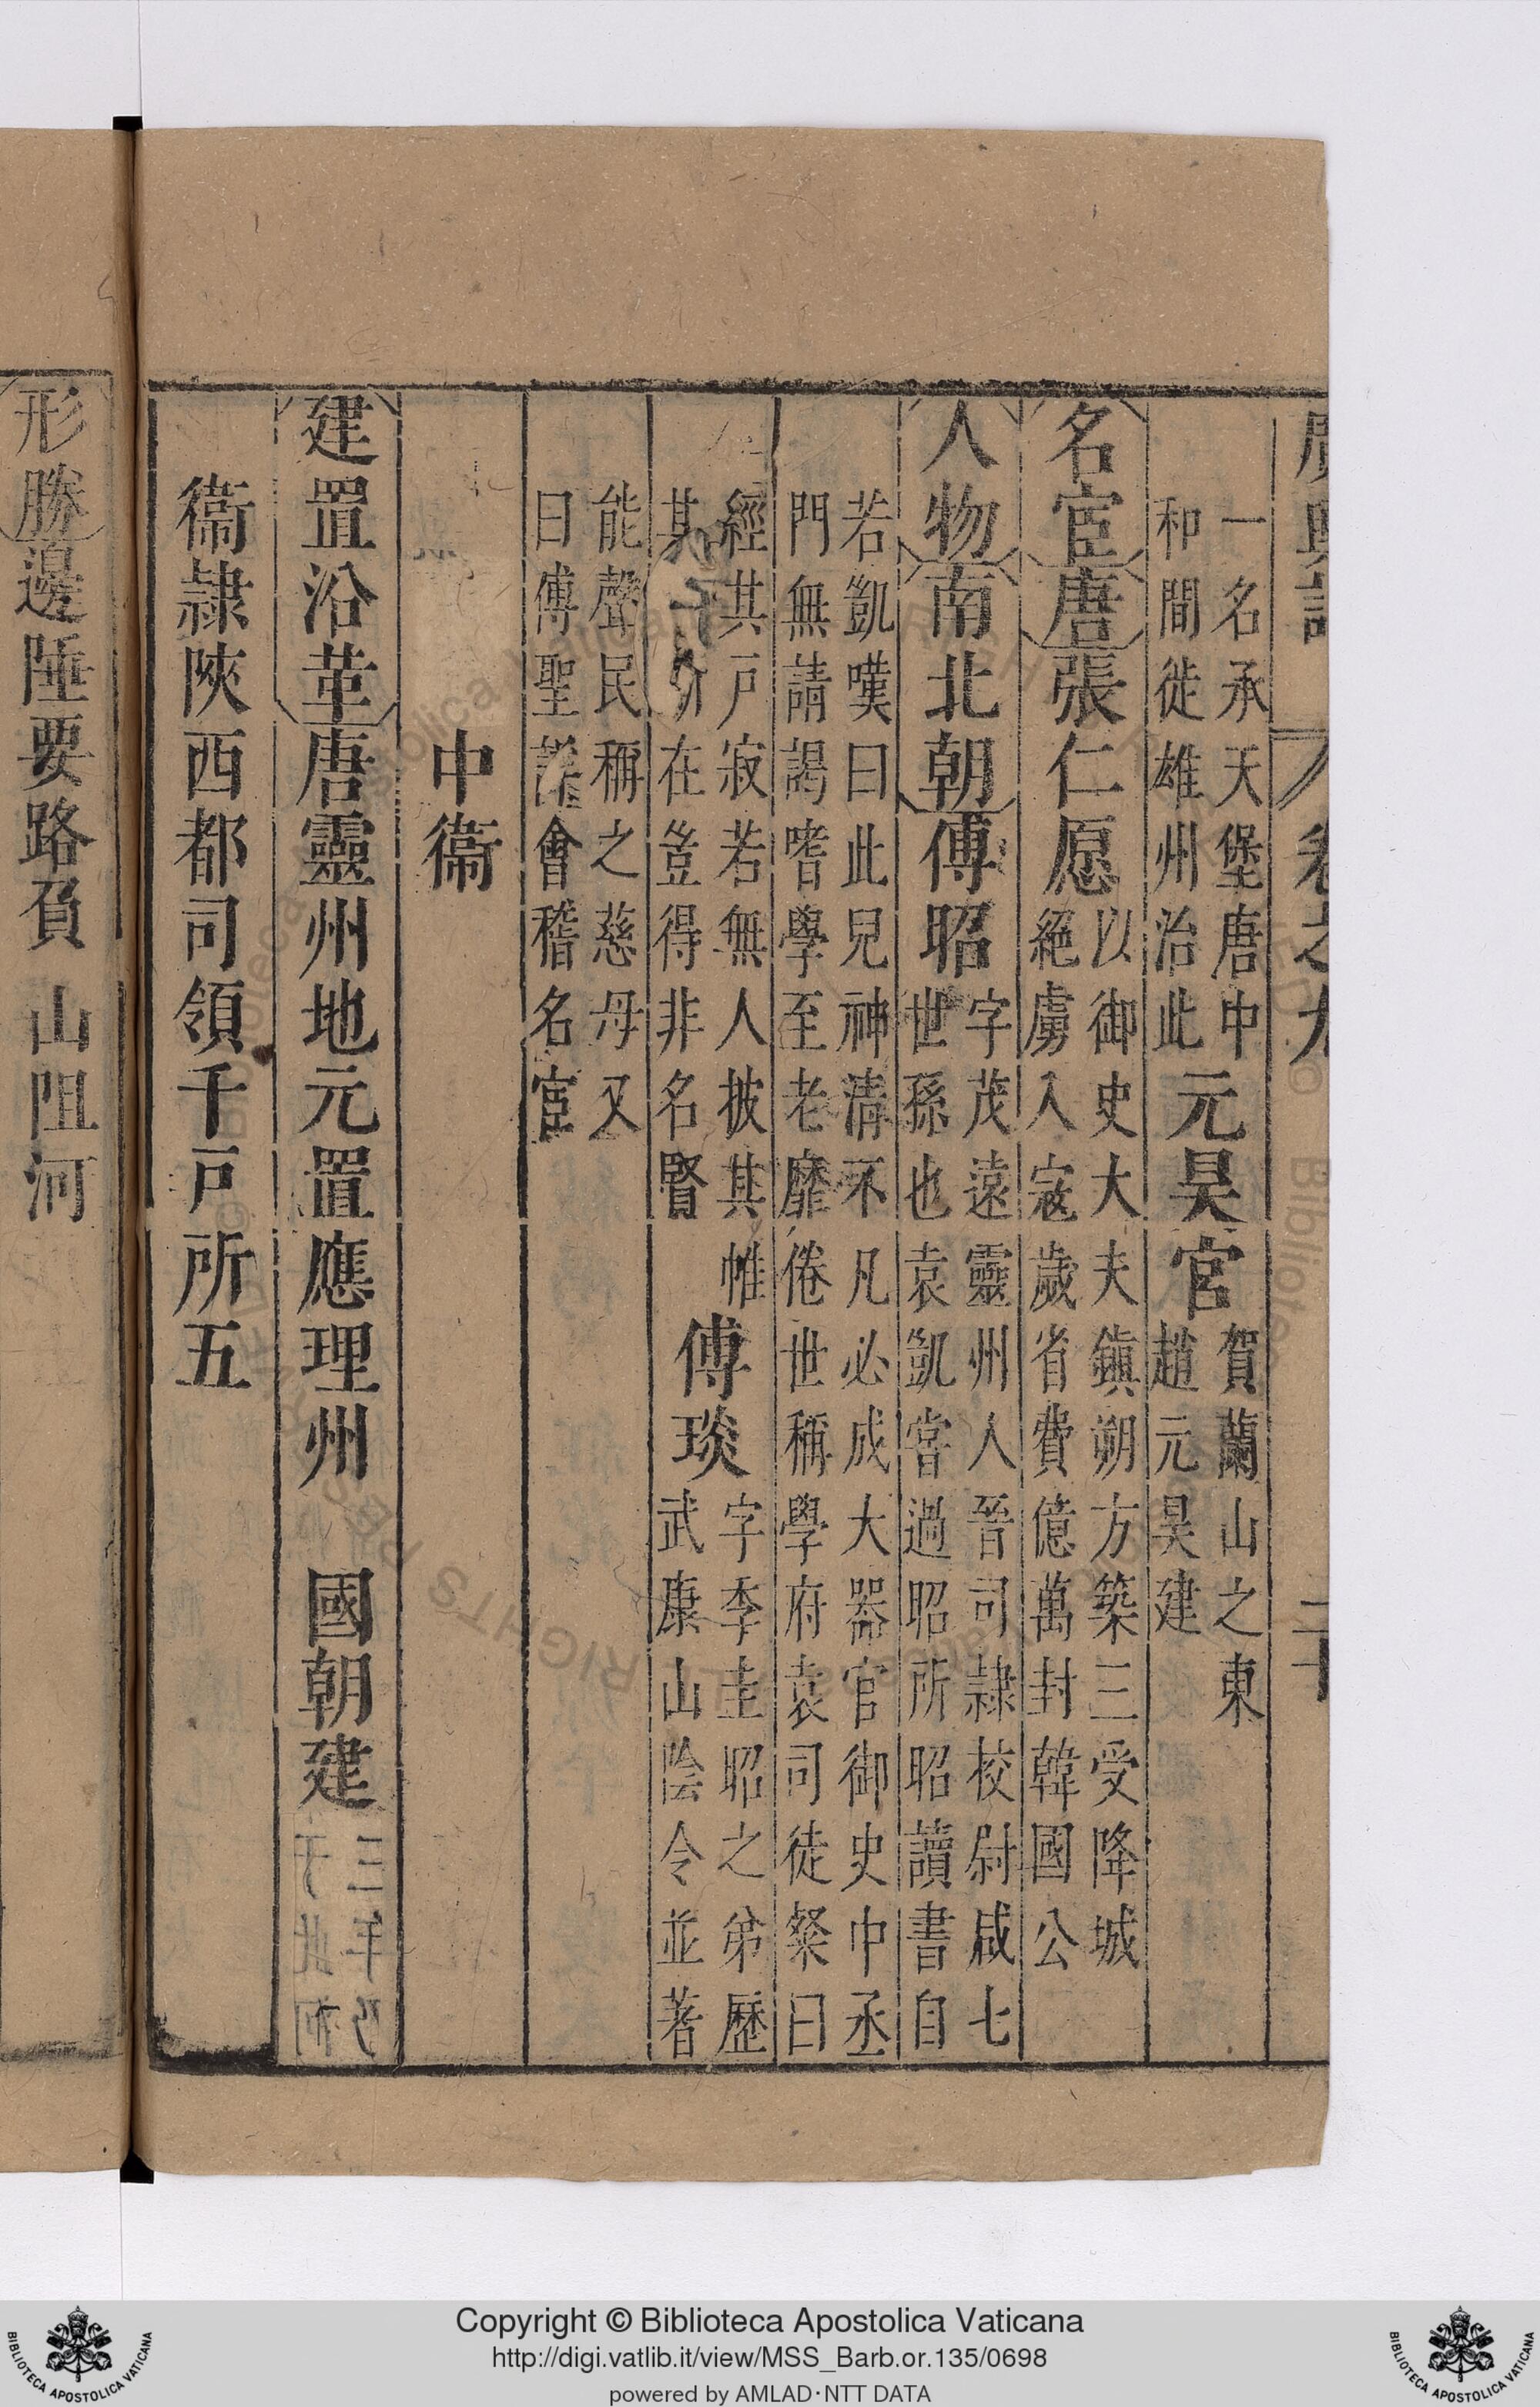 廣輿記 卷之九 二十
一名承天堡唐中
和間徙雄州治此元昊宮賀蘭山之東
趙元昊建
名宦唐張仁愿以御史大夫鎮朔方築三受降城
絕虜入寇歲省費億萬封韓國公
人物南北朝傅昭字茂遠靈州人晉司隸校尉咸七
世孫也袁凱嘗過昭所昭讀書自
若凱嘆曰此兒神清不凡必成大器官御史中丞
門無請謁嗜學至老靡倦世稱學府袁司徒粲曰
經其戶寂若無人披其帷
其人斯在豈得非名賢傅琰字季圭昭之弟歷
武康山陰令並著
能聲民稱之慈母又
曰傅聖 會稽名宦
中衞
建置沿革唐靈州地元置應理州 國朝建
衞隸陝西都司領千戶所五
形勝邊陲要路負 山阻河
Copyright © Biblioteca Apostolica Vaticana
http://digi.vatlib.it/view/MSS_Barb.or.135/0698
powered by AMLAD·NTT DATA
BIBLIOTECA APOSTOLICA VATICANA
BIBLIOTECA APOSTOLICA VATICANA